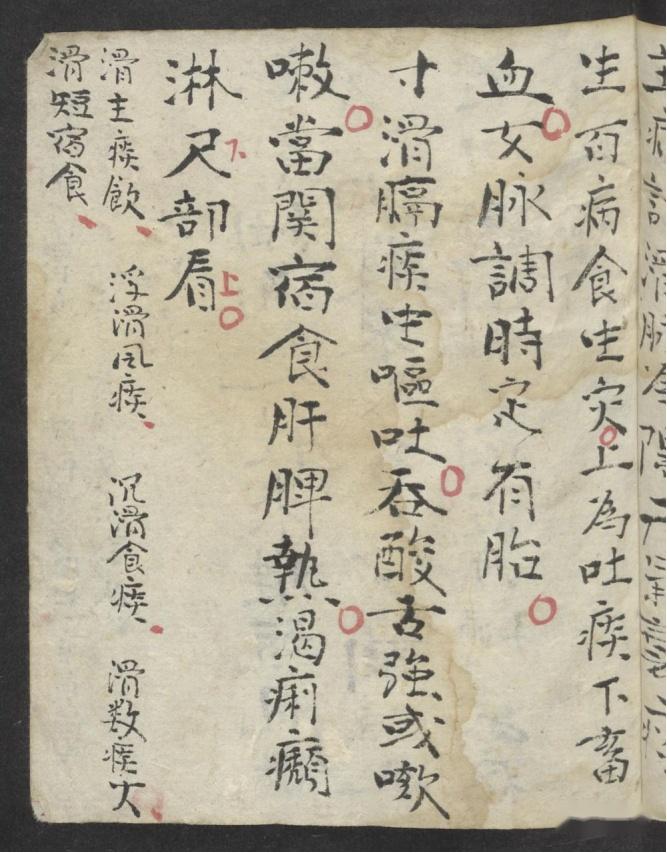 生百病食生灾上為吐痰下畜
血女脉調時定有胎
寸滑膈痰生嘔吐吞酸舌強或嗽
嗽當関宿食肝脾熱渴痢癲
淋尺部看
下
上
滑主痰飲 浮滑风痰 沉滑食痰 滑数痰火
滑短宿食